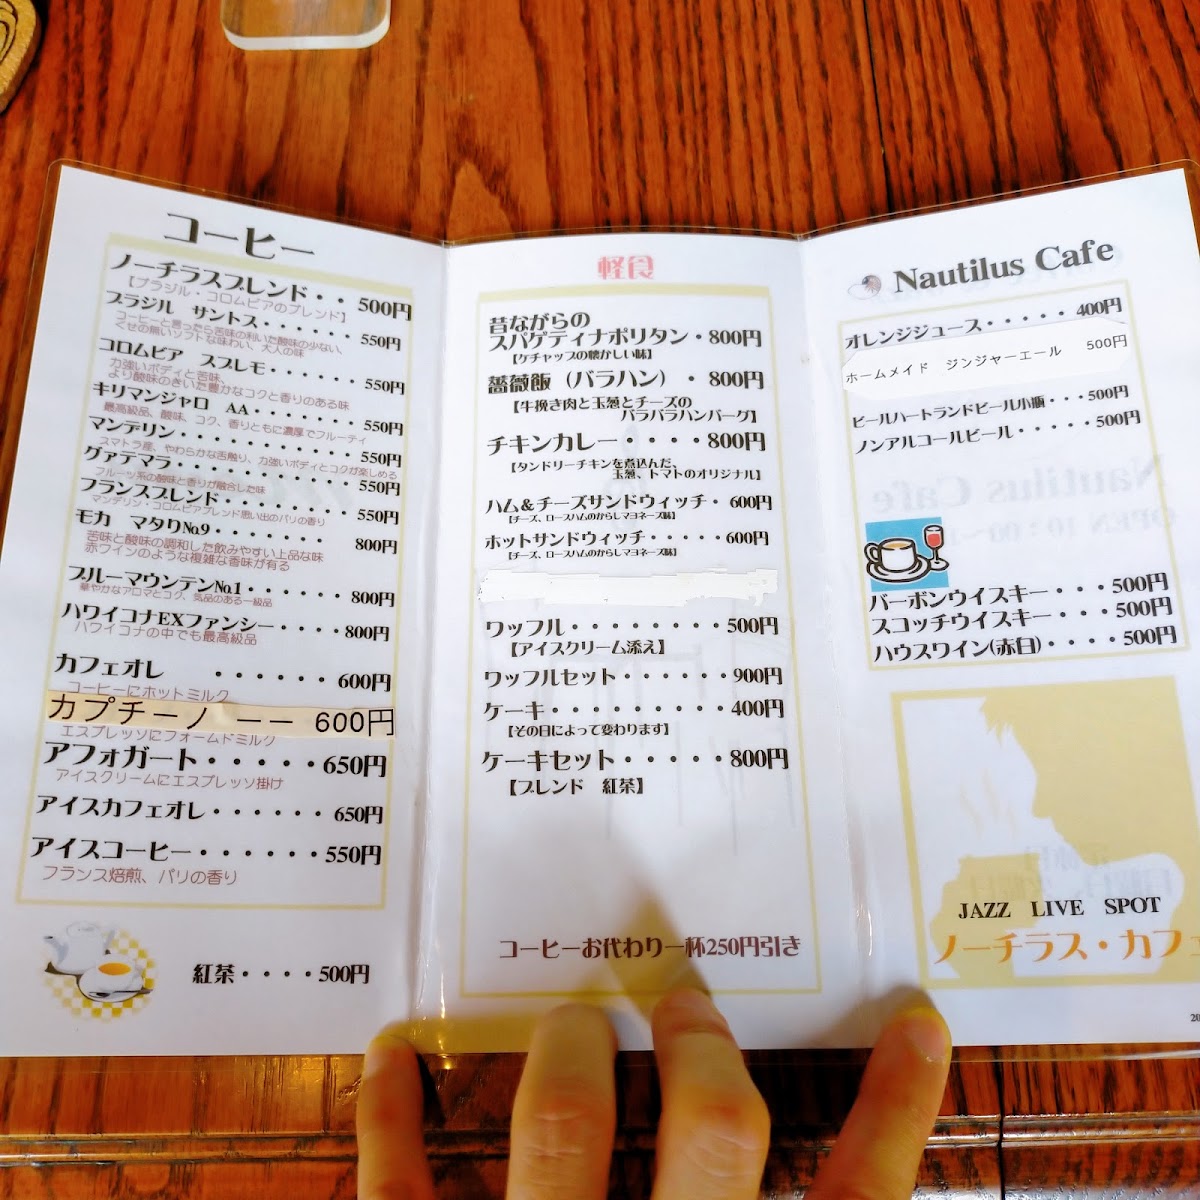 コーヒー
ノーチラスブレンド・・500円
【ブラジル・コロムビアのブレンド】
ブラジル サントス・・・・・・550円
コーヒーと言ったら苦味の利いた酸味の少ない、
くせの無いソフトな味わい、大人の味
コロムビア スプレモ・・・・・550円
力強いボディと苦味、
より酸味のきいた豊かなコクと香りのある味
キリマンジャロ AA・・・・・・550円
最高級品、酸味、コク、香りともに濃厚でフルーティ
マンデリン・・・・・・・・・・550円
スマトラ産、やわらかな舌触り、力強いボディとコクが楽しめる
グァテマラ・・・・・・・・・・550円
フルーツ系の酸味と香りが融合した味
フランスブレンド・・・・・・・550円
マンデリン・コロムビアブレンド思い出のパリの香り
モカ マタリNo.9・・・・・・・800円
苦味と酸味の調和した飲みやすい上品な味
赤ワインのような複雑な香味が有る
ブルーマウンテンNo.1・・・・・・800円
華やかなアロマとコク、気品のある一級品
ハワイコナEXファンシー・・・・800円
ハワイコナの中でも最高級品
カフェオレ ・・・・・・600円
コーヒーにホットミルク
カプチーノ ーー 600円
エスプレッソにフォームドミルク
アフォガート・・・・・650円
アイスクリームにエスプレッソ掛け
アイスカフェオレ・・・・・・650円
アイスコーヒー・・・・・・550円
フランス焙煎、パリの香り
紅茶・・・・500円
軽食
昔ながらの
スパゲティナポリタン・800円
【ケチャップの懐かしい味】
薔薇飯（バラハン）・800円
【牛挽き肉と玉葱とチーズの
バラバラハンバーグ】
チキンカレー・・・・800円
【タンドリーチキンを煮込んだ、
玉葱、トマトのオリジナル】
ハム＆チーズサンドウィッチ・600円
【チーズ、ロースハムのからしマヨネーズ味】
ホットサンドウィッチ・・・・・600円
【チーズ、ロースハムのからしマヨネーズ味】
ワッフル・・・・・・・・500円
【アイスクリーム添え】
ワッフルセット・・・・・・900円
ケーキ・・・・・・・・・400円
【その日によって変わります】
ケーキセット・・・・・800円
【ブレンド 紅茶】
コーヒーお代わり一杯250円引き
Nautilus Cafe
オレンジジュース・・・・・400円
ホームメイド ジンジャーエール 500円
ビールハートランドビール小瓶・・・500円
ノンアルコールビール・・・・・500円
バーボンウイスキー・・・500円
スコッチウイスキー・・・500円
ハウスワイン(赤白)・・・・500円
JAZZ LIVE SPOT
ノーチラス・カフェ